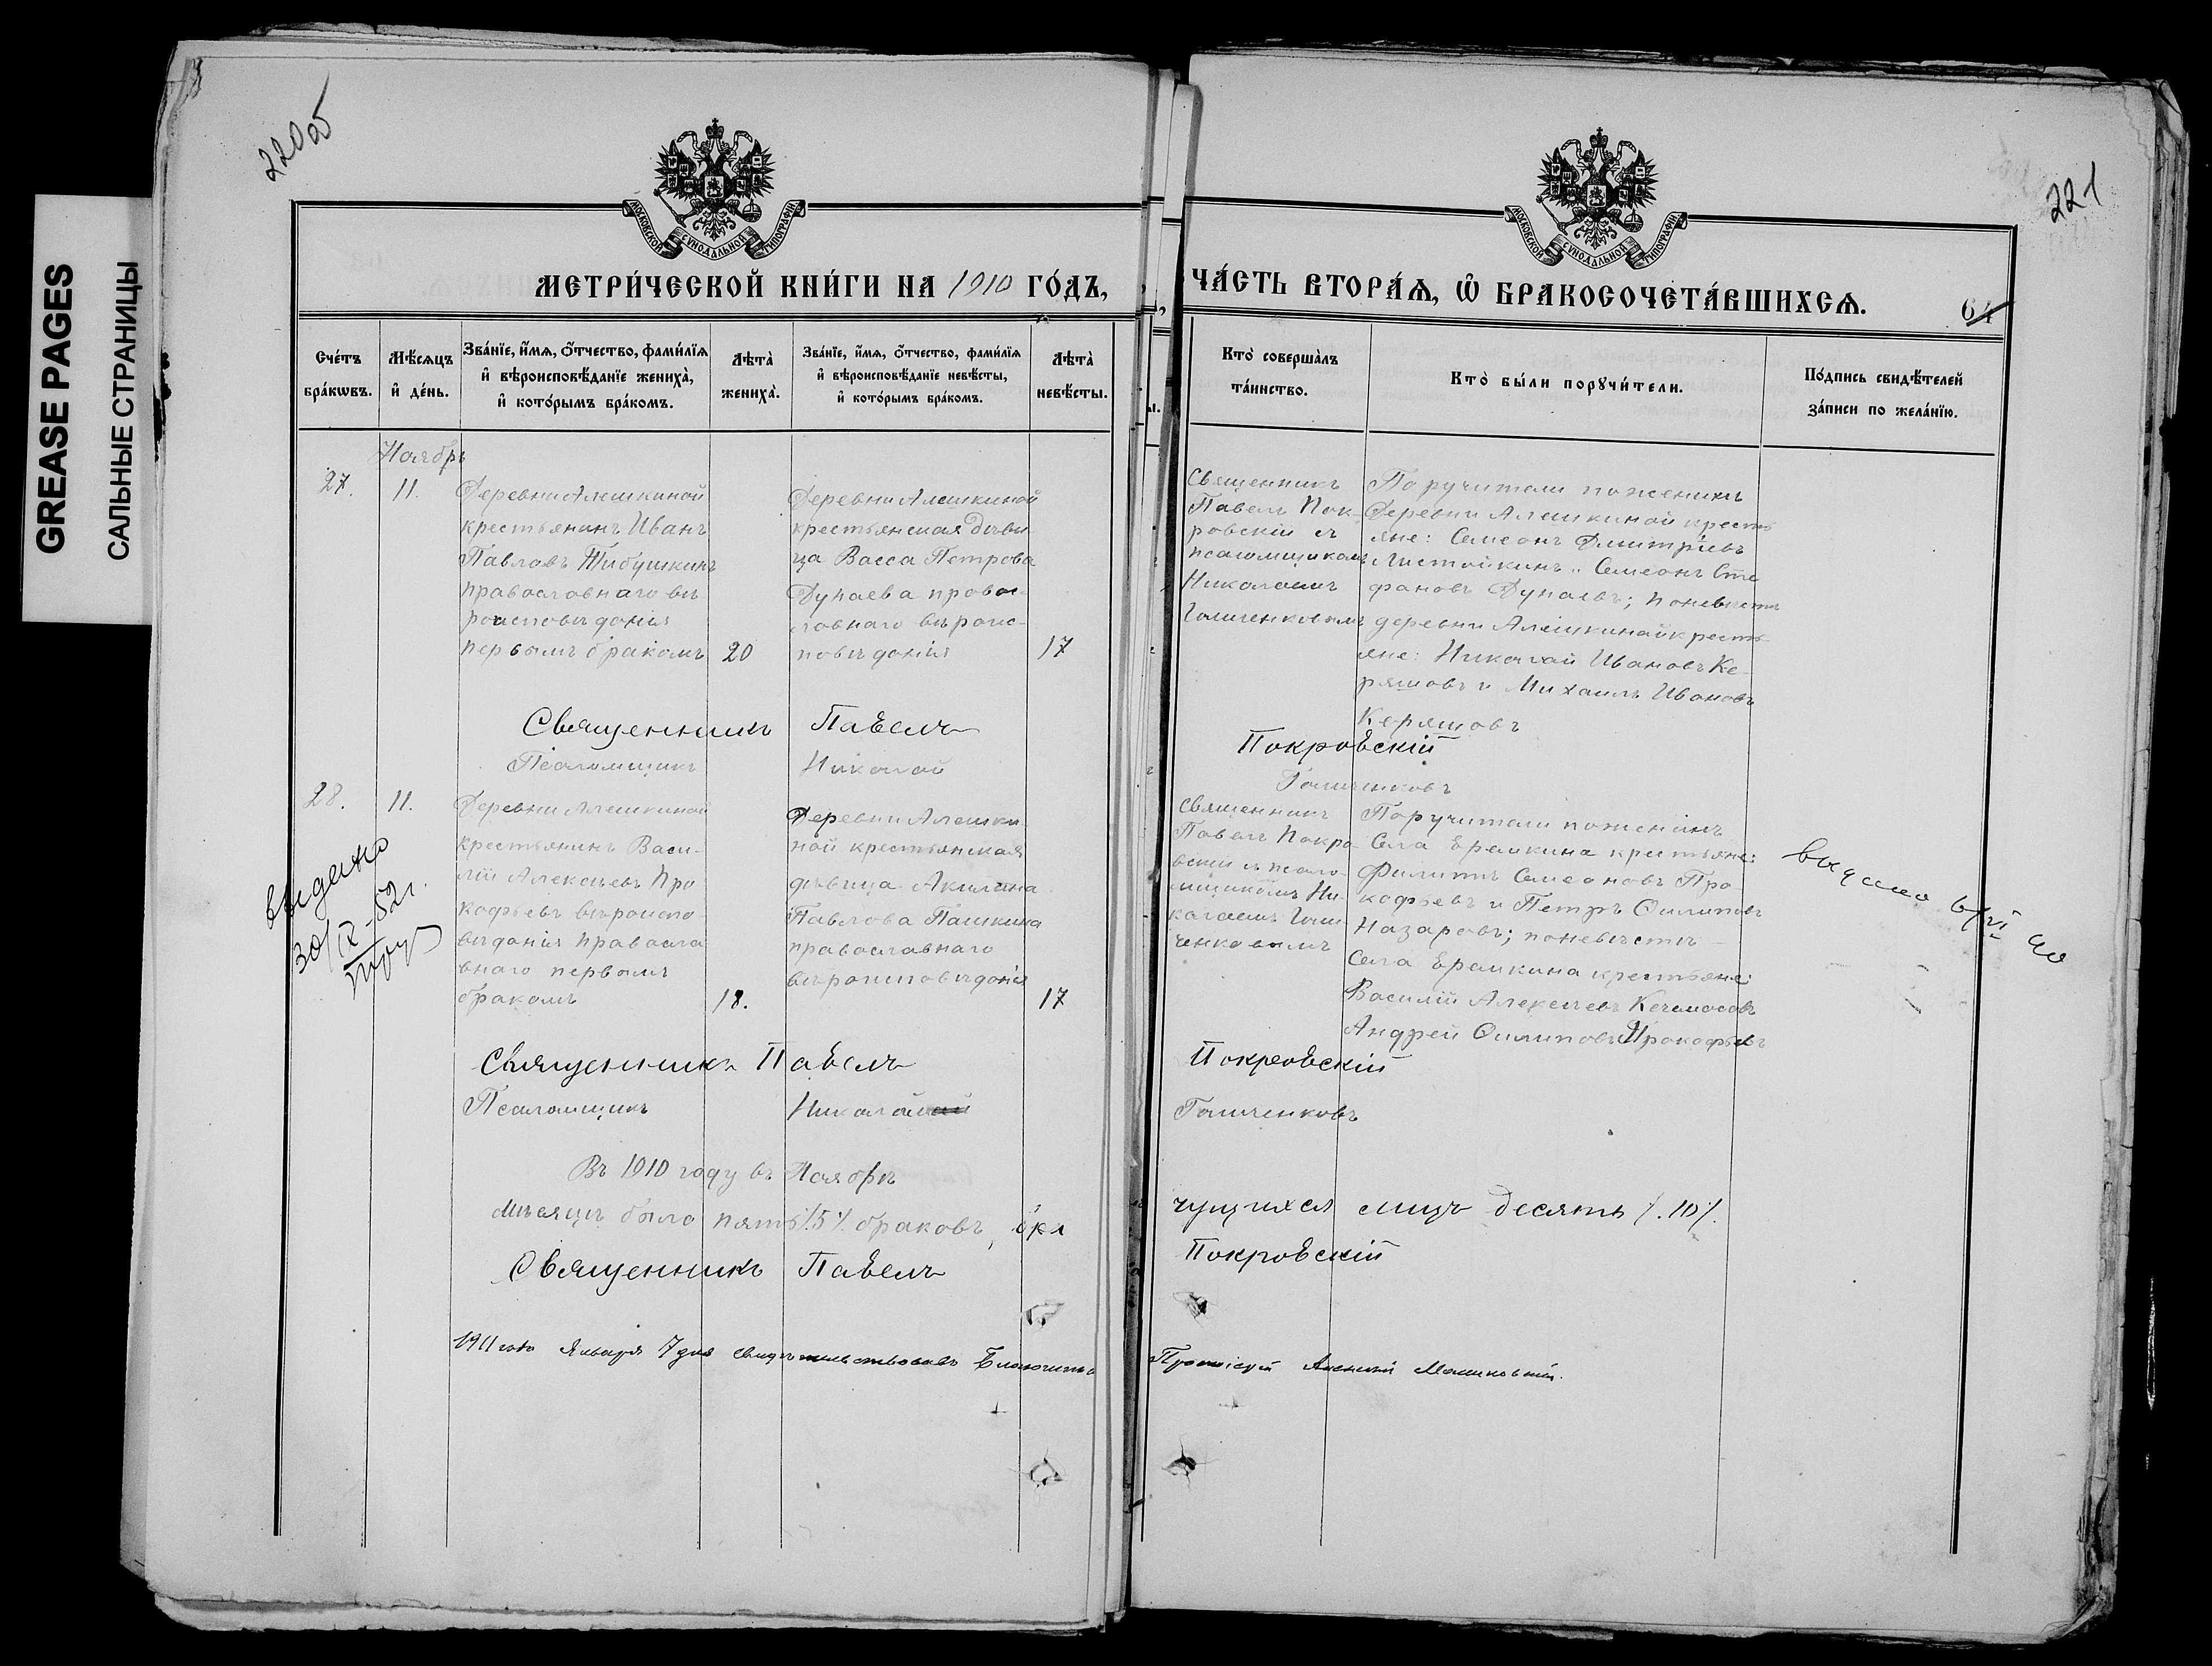 GREASE PAGES
САЛЬНЫЕ СТРАНИЦЫ
220 об
221
МОСКОВСКОЙ СѴНОДАЛЬНОЙ ТИПОГРАФІИ
МОСКОВСКОЙ СѴНОДАЛЬНОЙ ТИПОГРАФІИ
МЕТРИ́ЧЕСКОЙ КНИ́ГИ НА 1910 ГО́ДЪ,
ЧА́СТЬ ВТОРА́Ѧ, Ѽ БРАКОСОЧЕТА́ВШИХСѦ.
64
Сче́тъ бра́кѡвъ.
Мѣ́сѧцъ и҆ де́нь.
Зва́нїе, и҆́мѧ, ѻ҆́тчество, фами́лїѧ и҆ вѣроисповѣ́данїе жениха̀, и҆ кото́рымъ бра́комъ.
Лѣ́та̀ жениха̀.
Зва́нїе, и҆́мѧ, ѻ҆́тчество, фами́лїѧ и҆ вѣроисповѣ́данїе невѣ́сты, и҆ кото́рымъ бра́комъ.
Лѣ́та̀ невѣ́сты.
Кто̀ соверша́лъ та́инство.
Кто̀ бы́ли порꙋчи́тели.
По́дпись свидѣ́телей за́писи по жела́нїю.
Ноябрь
27.
11.
Деревни Алешкиной
крестьянинъ Иванъ
Павловъ Тибушкинъ
православнаго вѣ
роисповѣданія
первымъ бракомъ
20
Деревни Алешкиной
крестьянская дѣви
ца Васса Петрова
Дунаева правос
лавнаго вѣроис-
повѣданія
17
Священникъ
Павелъ Пок-
ровскій съ
псаломщикомъ
Николаемъ
Поручители по женихѣ
Деревни Алешкиной кресть
яне: Семеонъ Дмитріевъ
Листойкинъ и Семеонъ Сте
фановъ Дунаевъ; по невѣстѣ
деревни Алешкиной кресть
яне: Николай Ивановъ Ке
ряшовъ и Михаилъ Ивановъ
Керяшовъ
Священникъ Павелъ Покровскій
Псаломщикъ Николай
28.
11.
Деревни Алешкиной
крестьянинъ Васи-
лій Алексѣевъ Про
кофьевъ вѣроиспо-
вѣданія правосла
внаго первымъ
бракомъ
18.
Деревни Алешки
ной крестьянская
дѣвица Акилина
Павлова Пашкина
православнаго
вѣроисповѣданія
17
Священникъ
Павелъ Покро-
вскій съ псало-
мщикомъ Ни-
колаемъ
Поручители по женихѣ
Села Еремкина крестьяне:
Филиппъ Семеоновъ Про-
кофьевъ и Петръ Филиповъ
Назаровъ; по невѣстѣ
Села Еремкина крестьяне:
Василій Алексѣевъ
Андрей Филиповъ Прокофьевъ
выдано
30/IX-52г.
выдано
Священникъ Павелъ Покровскій
Псаломщикъ Николай
Въ 1910 году въ Ноябрѣ
мѣсяцѣ было пять /.5/. браковъ, бра
чущихся лицъ десять /.10/.
Священникъ Павелъ Покровскій
1911 года Января 7 дня свидѣтельствовалъ Благочинный
Протоіерей